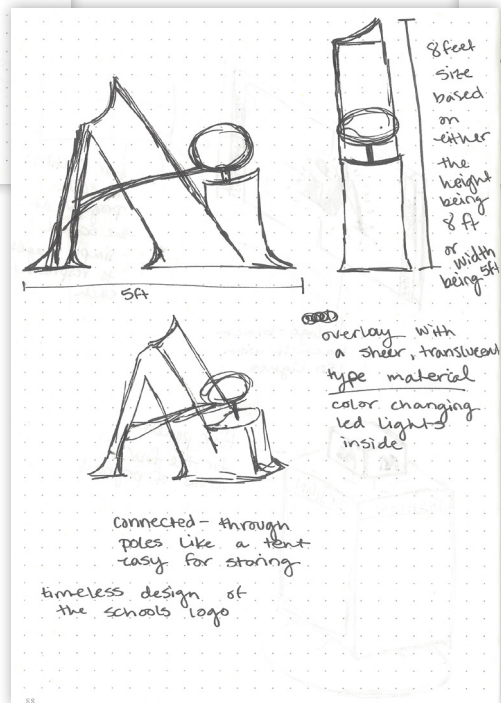 8 feet
size
based
on
either
the
height
being
8 ft
or width
being 5ft
5ft
overlay with
a sheer, translucent
type material
color changing
led lights
inside
connected - through
poles like a tent
easy for storing
timeless design of
the schools logo